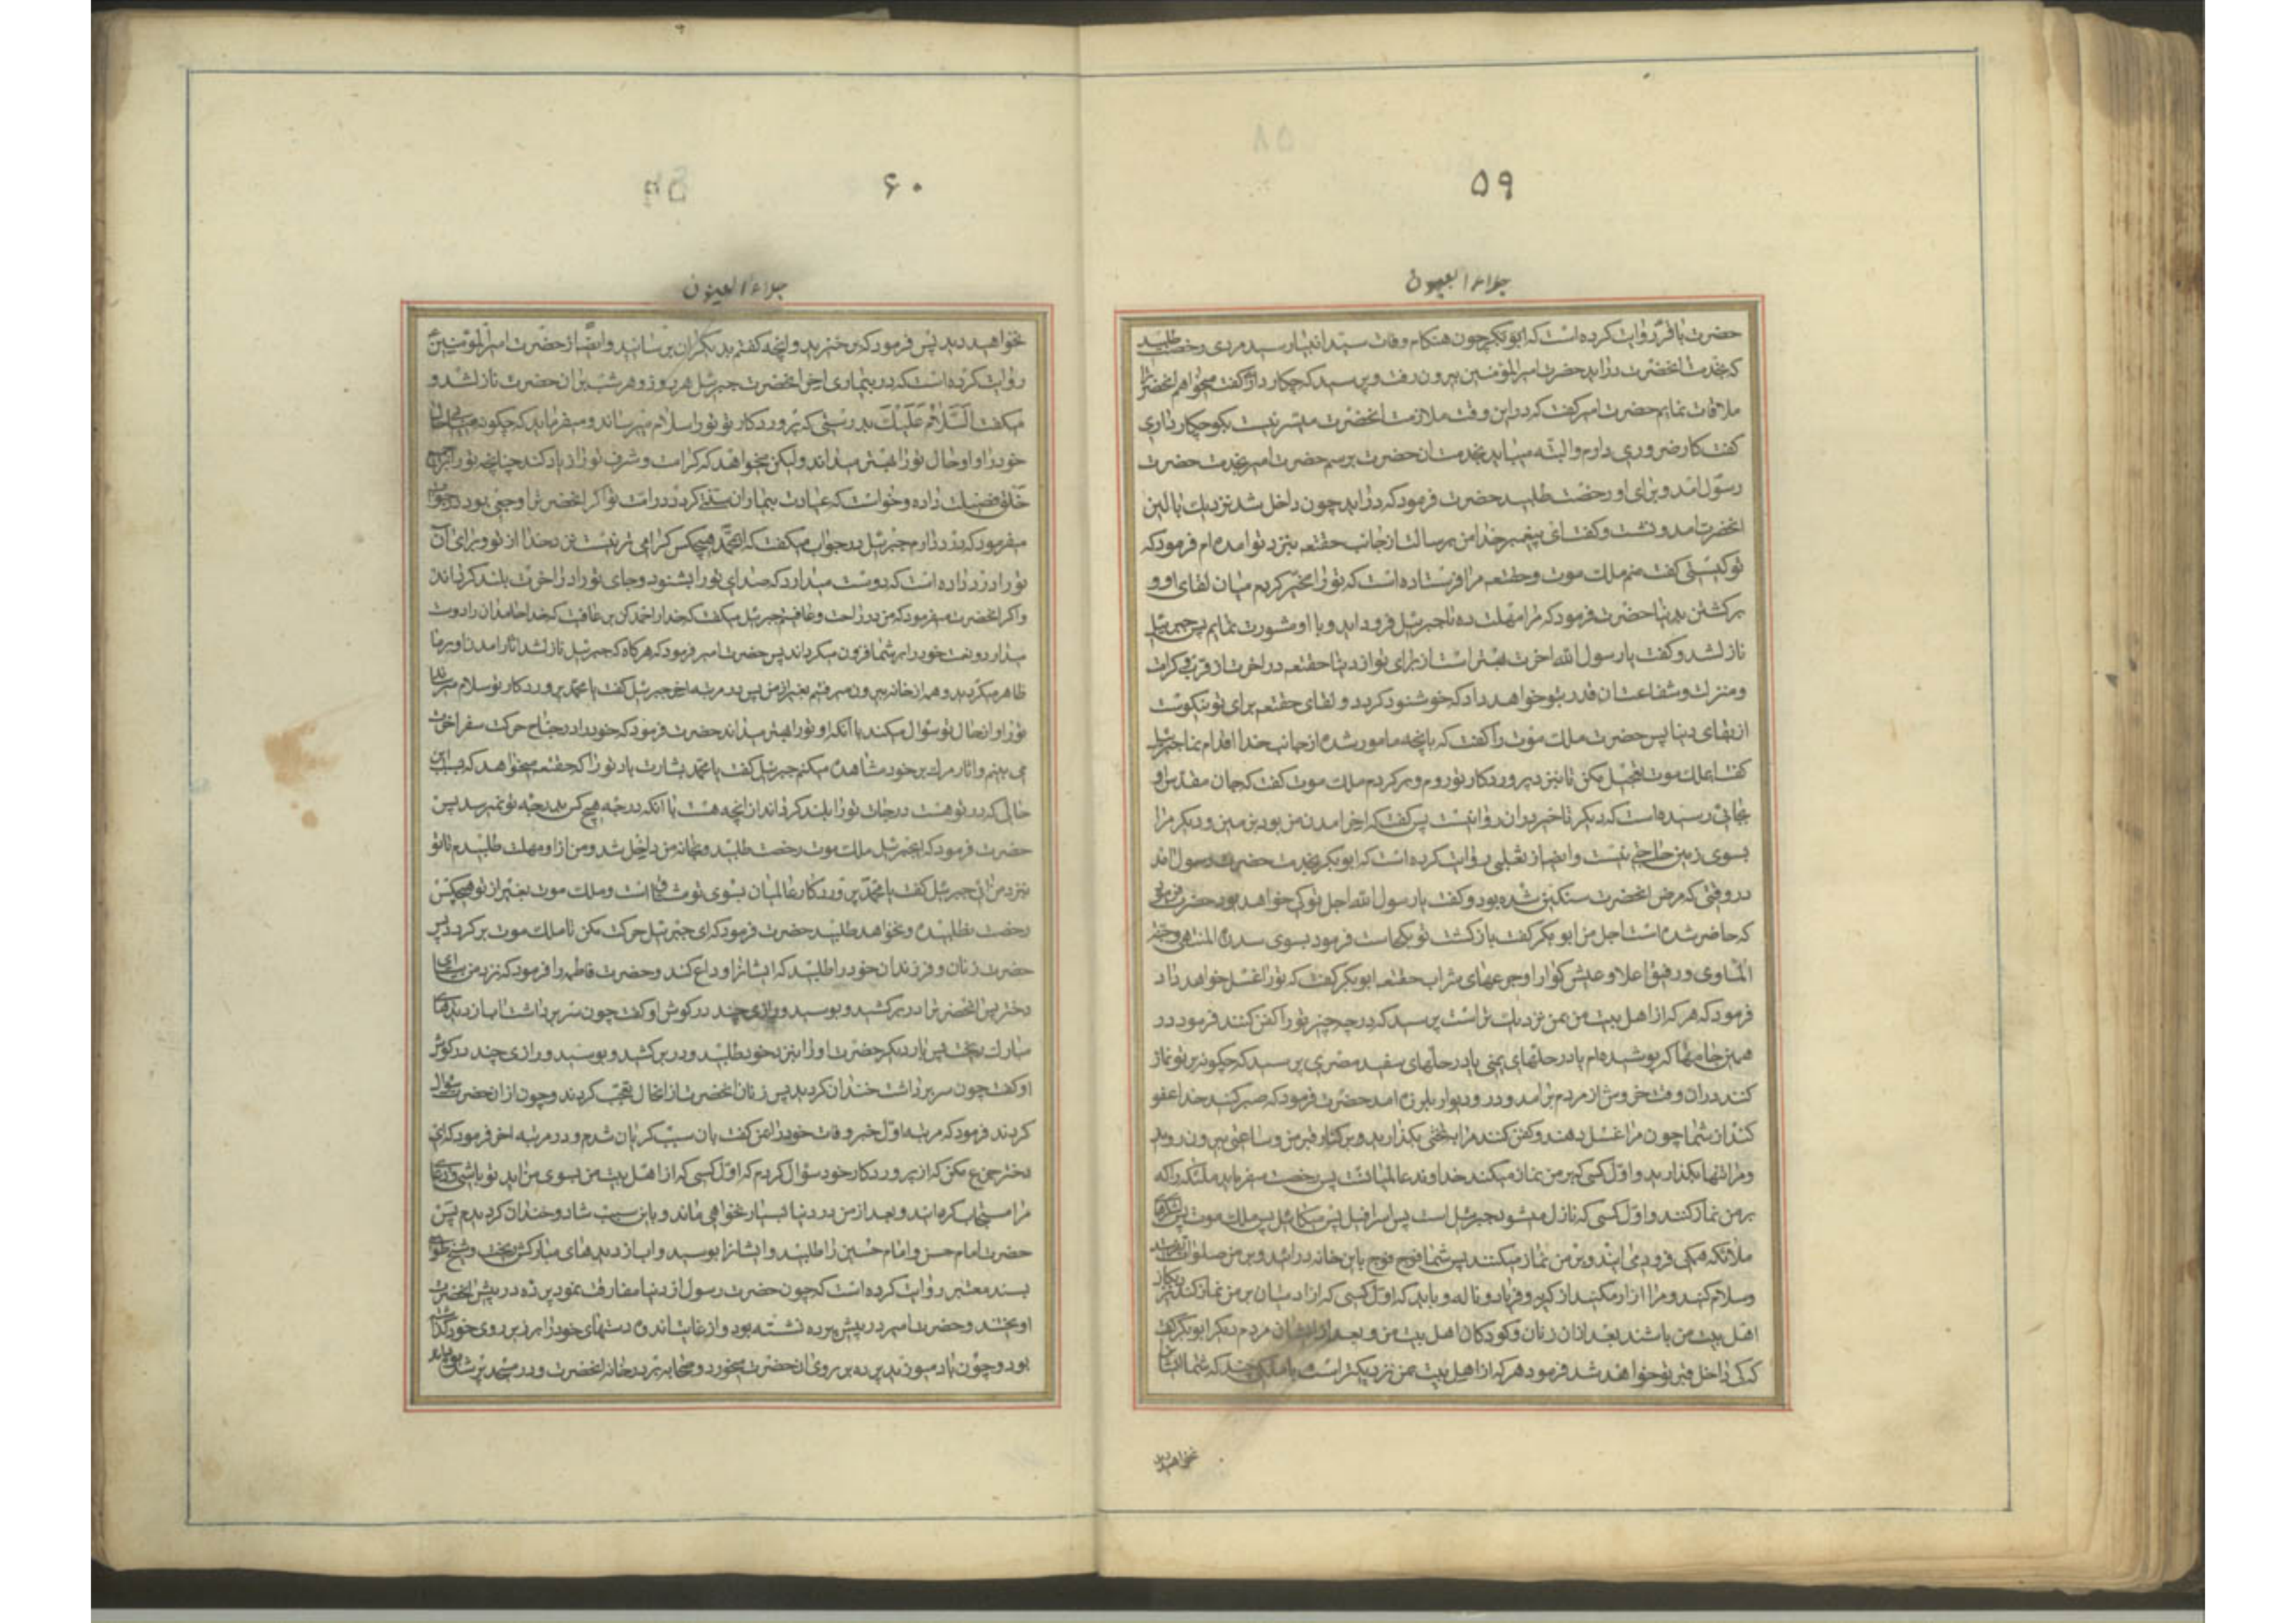 ۵۹
جلاء العیون
حضرت باقر روایت کرده است که ابوبکر چون هنکام وفات سید انبیا رسید مردی رخصت طلبید
که بخدمت انحضرت دراید حضرت امیرالمؤمنین بیرون رفت و پرسید که چکار داری گفت میخواهم انحضرت را
ملاقات نمایم حضرت امیر کفت که در این وقت ملازمت انحضرت میسر نیست بکو چکار داری
کفت کار ضروری دارم و البته میباید بخدمت ان حضرت برسم حضرت امیر بخدمت حضرت
رسول امد و برای او رخصت طلبید حضرت فرمود که دراید چون داخل شد نزدیک بالین
انحضرت امد و نشست و کفت ای پیغمبر خدا من برسالت از جانب حقتعه بنزد تو امده ام فرمود که
تو کیستی کفت منم ملک موت و حقتعه مرا فرستاده است که تو را مخیر کردم میان لقای او و
برکشتن بدنیا حضرت فرمود که مرا مهلت ده تا جبرئیل فرود اید و با او مشورت نمایم پس جبرئیل
نازل شد و کفت یا رسول الله اخرت بهتر است از برای تو از دنیا حقتعه در اخرت از قرب و کرامت
و منزلت و شفاعت ان قدر بتو خواهد داد که خوشنود کردد و لقای حقتعه برای تو نیکوست
از بقای دنیا پس حضرت ملک موت را کفت که بانچه مامور شده از جانب خدا اقدام نما جبرئیل
کفت ای ملک موت تعجیل مکن تا بنزد پروردکار تو روم و برکردم ملک موت کفت که جان مقدس او
بجائی رسیده است که دیکر تاخیر در ان روا نیست پس کفت که اخر امدن من بود بزمین و دیکر مرا
بسوی زمین حاجتی نیست و ایضا از ثعلبی روایت کرده است که ابوبکر بخدمت حضرت رسول امد
در وقتی که مرض انحضرت سنکین شده بود و کفت یا رسول الله اجل تو کی خواهد بود حضرت فرمود
که حاضر شده است اجل من ابو بکر کفت بازکشت تو بکجاست فرمود بسوی سدرة المنتهی و جنة
المأوی و رفیق اعلا و عیش کوارا و جرعهای شراب حقتعه ابوبکر کفت که تو را غسل خواهد داد
فرمود که هر که از اهل بیت من بمن نزدیک تر است پرسید که در چه چیز تو را کفن کنند فرمود در
همین جامها که پوشیده ام یا در حلهای یمنی یا در حلهای سفید مصری پرسید که چکونه بر تو نماز
کنند در ان وقت خروش از مردم برامد و در و دیوار بلرزه امد حضرت فرمود که صبر کنید خدا عفو
کند از شما چون مرا غسل دهند و کفن کنند مرا بر تختی بکذارید و بر کنار قبر من و ساعتی بیرون روید
و مرا تنها بکذارید و اول کسی که بر من نماز میکند خداوند عالمیانست پس رخصت میفرماید ملائکه را که
بر من نماز کنند و اول کسی که نازل میشود جبرئیل است پس اسرافیل پس میکائیل پس ملک موت پس لشکرهای
ملائکه همکی فرود می ایند و بر من نماز میکنند پس شما فوج فوج باین خانه درائید و بر من صلوات بفرستید
و سلام کنید و مرا ازار مکنید از کریه و فریاد و ناله و باید که اول کسی که از ادمیان بر من نماز کند نزدیکتر
اهل بیت من باشند بعد از ان زنان و کودکان اهل بیت من و بعد از ایشان مردم دیکر ابوبکر کفت
که کی داخل قبر تو خواهد شد فرمود هر که از اهل بیت بمن نزدیکتر است با ملکی چند که شما ایشان را
نخواهید دید
۶۰
جلاء العیون
نخواهید دید پس فرمود که برخیزید و انچه کفتم بدیکران برسانید و ایضا از حضرت امیرالمؤمنین
روایت کرده است که در بیماری اخر انحضرت جبرئیل هر روز و هر شب بران حضرت نازل شد و
میکفت السلام علیک بدرستی که پروردکار تو تو را سلام میرساند و میفرماید که چکونه مییابی حال
خود را و او حال تو را بهتر میداند ولیکن میخواهد که کرامت و شرف تو را زیاد کند چنانچه تو را بر جمیع
خلق فضیلت داده و خواست که عیادت بیماران سنتی کردد در امت تو اکر انحضرت را وجعی بود در جواب
میفرمود که درد دارم جبرئیل در جواب میکفت که ای محمد هیچکس کرامی تر نیست نزد خدا از تو و برای ان
تو را درد داده است که دوست میدارد که صدای تو را بشنود و جای تو را در اخرت بلند کرداند
و اکر انحضرت میفرمود که من در راحت و عافیتم جبرئیل میکفت که خدا را حمد کن بر عافیت که خدا حامدان را دوست
میدارد و نعمت خود را بر شما فزون میکرداند پس حضرت امیر فرمود که هر کاه که جبرئیل نازل شد اثار امدن او بر ما
ظاهر میکردید و همه از خانه بیرون میرفتیم بغیر از من پس در مرتبه اخر جبرئیل کفت یا محمد پروردکار تو سلام میرساند
تو را و از حال تو سؤال میکند با انکه او تو را بهتر میداند حضرت فرمود که خود را در جناح حرکت سفر اخرت
می بینم و اثار مرک بر خود مشاهده میکنم جبرئیل کفت یا محمد بشارت باد تو را که حقتعه میخواهد که بسبب این
حالی که در تو هست درجات تو را بلند کرداند از انچه هست با انکه درجه هیچ کس بدرجه تو نمیرسد پس
حضرت فرمود که ای جبرئیل ملک موت رخصت طلبید و بخانه من داخل شد و من از او مهلت طلبیدم تا تو
بنزد من ائی جبرئیل کفت یا محمد پروردکار عالمیان بسوی تو مشتاق است و ملک موت بغیر از تو از هیچکس
رخصت نطلبیده و نخواهد طلبید حضرت فرمود که ای جبرئیل حرکت مکن تا ملک موت برکردد پس
حضرت زنان و فرزندان خود را طلبید که ایشانرا وداع کند و حضرت فاطمه را فرمود که نزد من بیا ای
دختر پس انحضرت را در بر کشید و بوسید و رازی چند در کوش او کفت چون سر برداشت اب از دیدهای
مبارک بریخت پس بار دیکر حضرت او را بنزد خود طلبید و در بر کشید و بوسید و رازی چند در کوش
او کفت چون سر برداشت خندان کردید پس زنان انحضرت از انحال تعجب کردند و چون از ان حضرت سؤال
کردند فرمود که مرتبه اول خبر وفات خود را بمن کفت بان سبب کریان شدم و در مرتبه اخر فرمود که ای
دختر جزع مکن که از پروردکار خود سؤال کردم که اول کسی که از اهل بیت من بسوی من اید تو باشی و دعای
مرا مستجاب کردانید و بعد از من در دنیا بسیار نخواهی ماند و باین سبب شاد و خندان کردیدم پس
حضرت امام حسن و امام حسین را طلبید و ایشانرا بوسید و اب از دیدهای مبارکش بریخت و شیخ طوسی
بسند معتبر روایت کرده است که چون حضرت رسول از دنیا مفارقت نمود پرده در پیش انحضرت
اویختند و حضرت امیر در پیش پرده نشسته بود و از غایت اندوه دستهای خود را بر زیر روی خود کذاشته
بود و چون باد میوزید پرده بر روی ان حضرت میخورد و صحابه بر در خانه انحضرت و در مسجد پر شده بودند